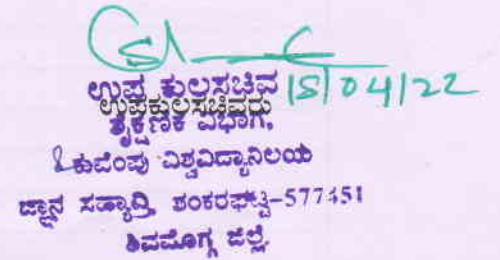 15/04/22
ಉಪ ಕುಲಸಚಿವ
ಉಪಕುಲಸಚಿವರು
ಶೈಕ್ಷಣಿಕ ವಿಭಾಗ,
ಕುವೆಂಪು ವಿಶ್ವವಿದ್ಯಾನಿಲಯ
ಜ್ಞಾನ ಸಹ್ಯಾದ್ರಿ, ಶಂಕರಘಟ್ಟ-577451
ಶಿವಮೊಗ್ಗ ಜಿಲ್ಲೆ.